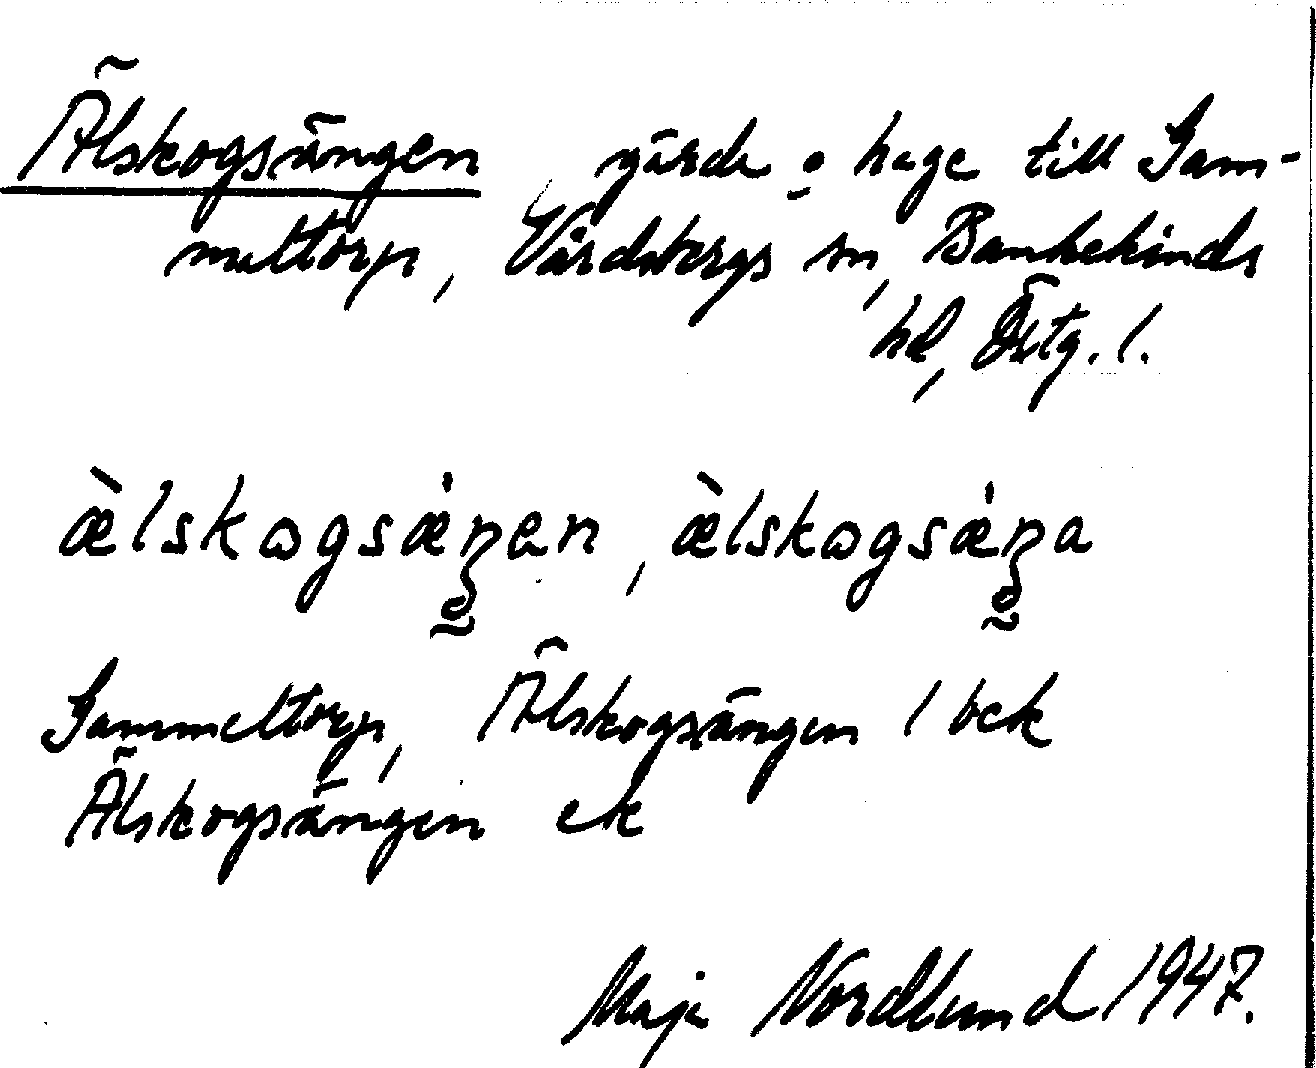 Älskogsängen gärde o hage till Gam-
meltorp, Vårdsbergs sn, Bankekinds
hd, Östg. l.
æ̀lskωgsǽŋen, æ̀lskωgsǽŋa
Gammeltorp, Älskogsängen l bek
Älskogsängen ek
Maja Nordlund 1947.